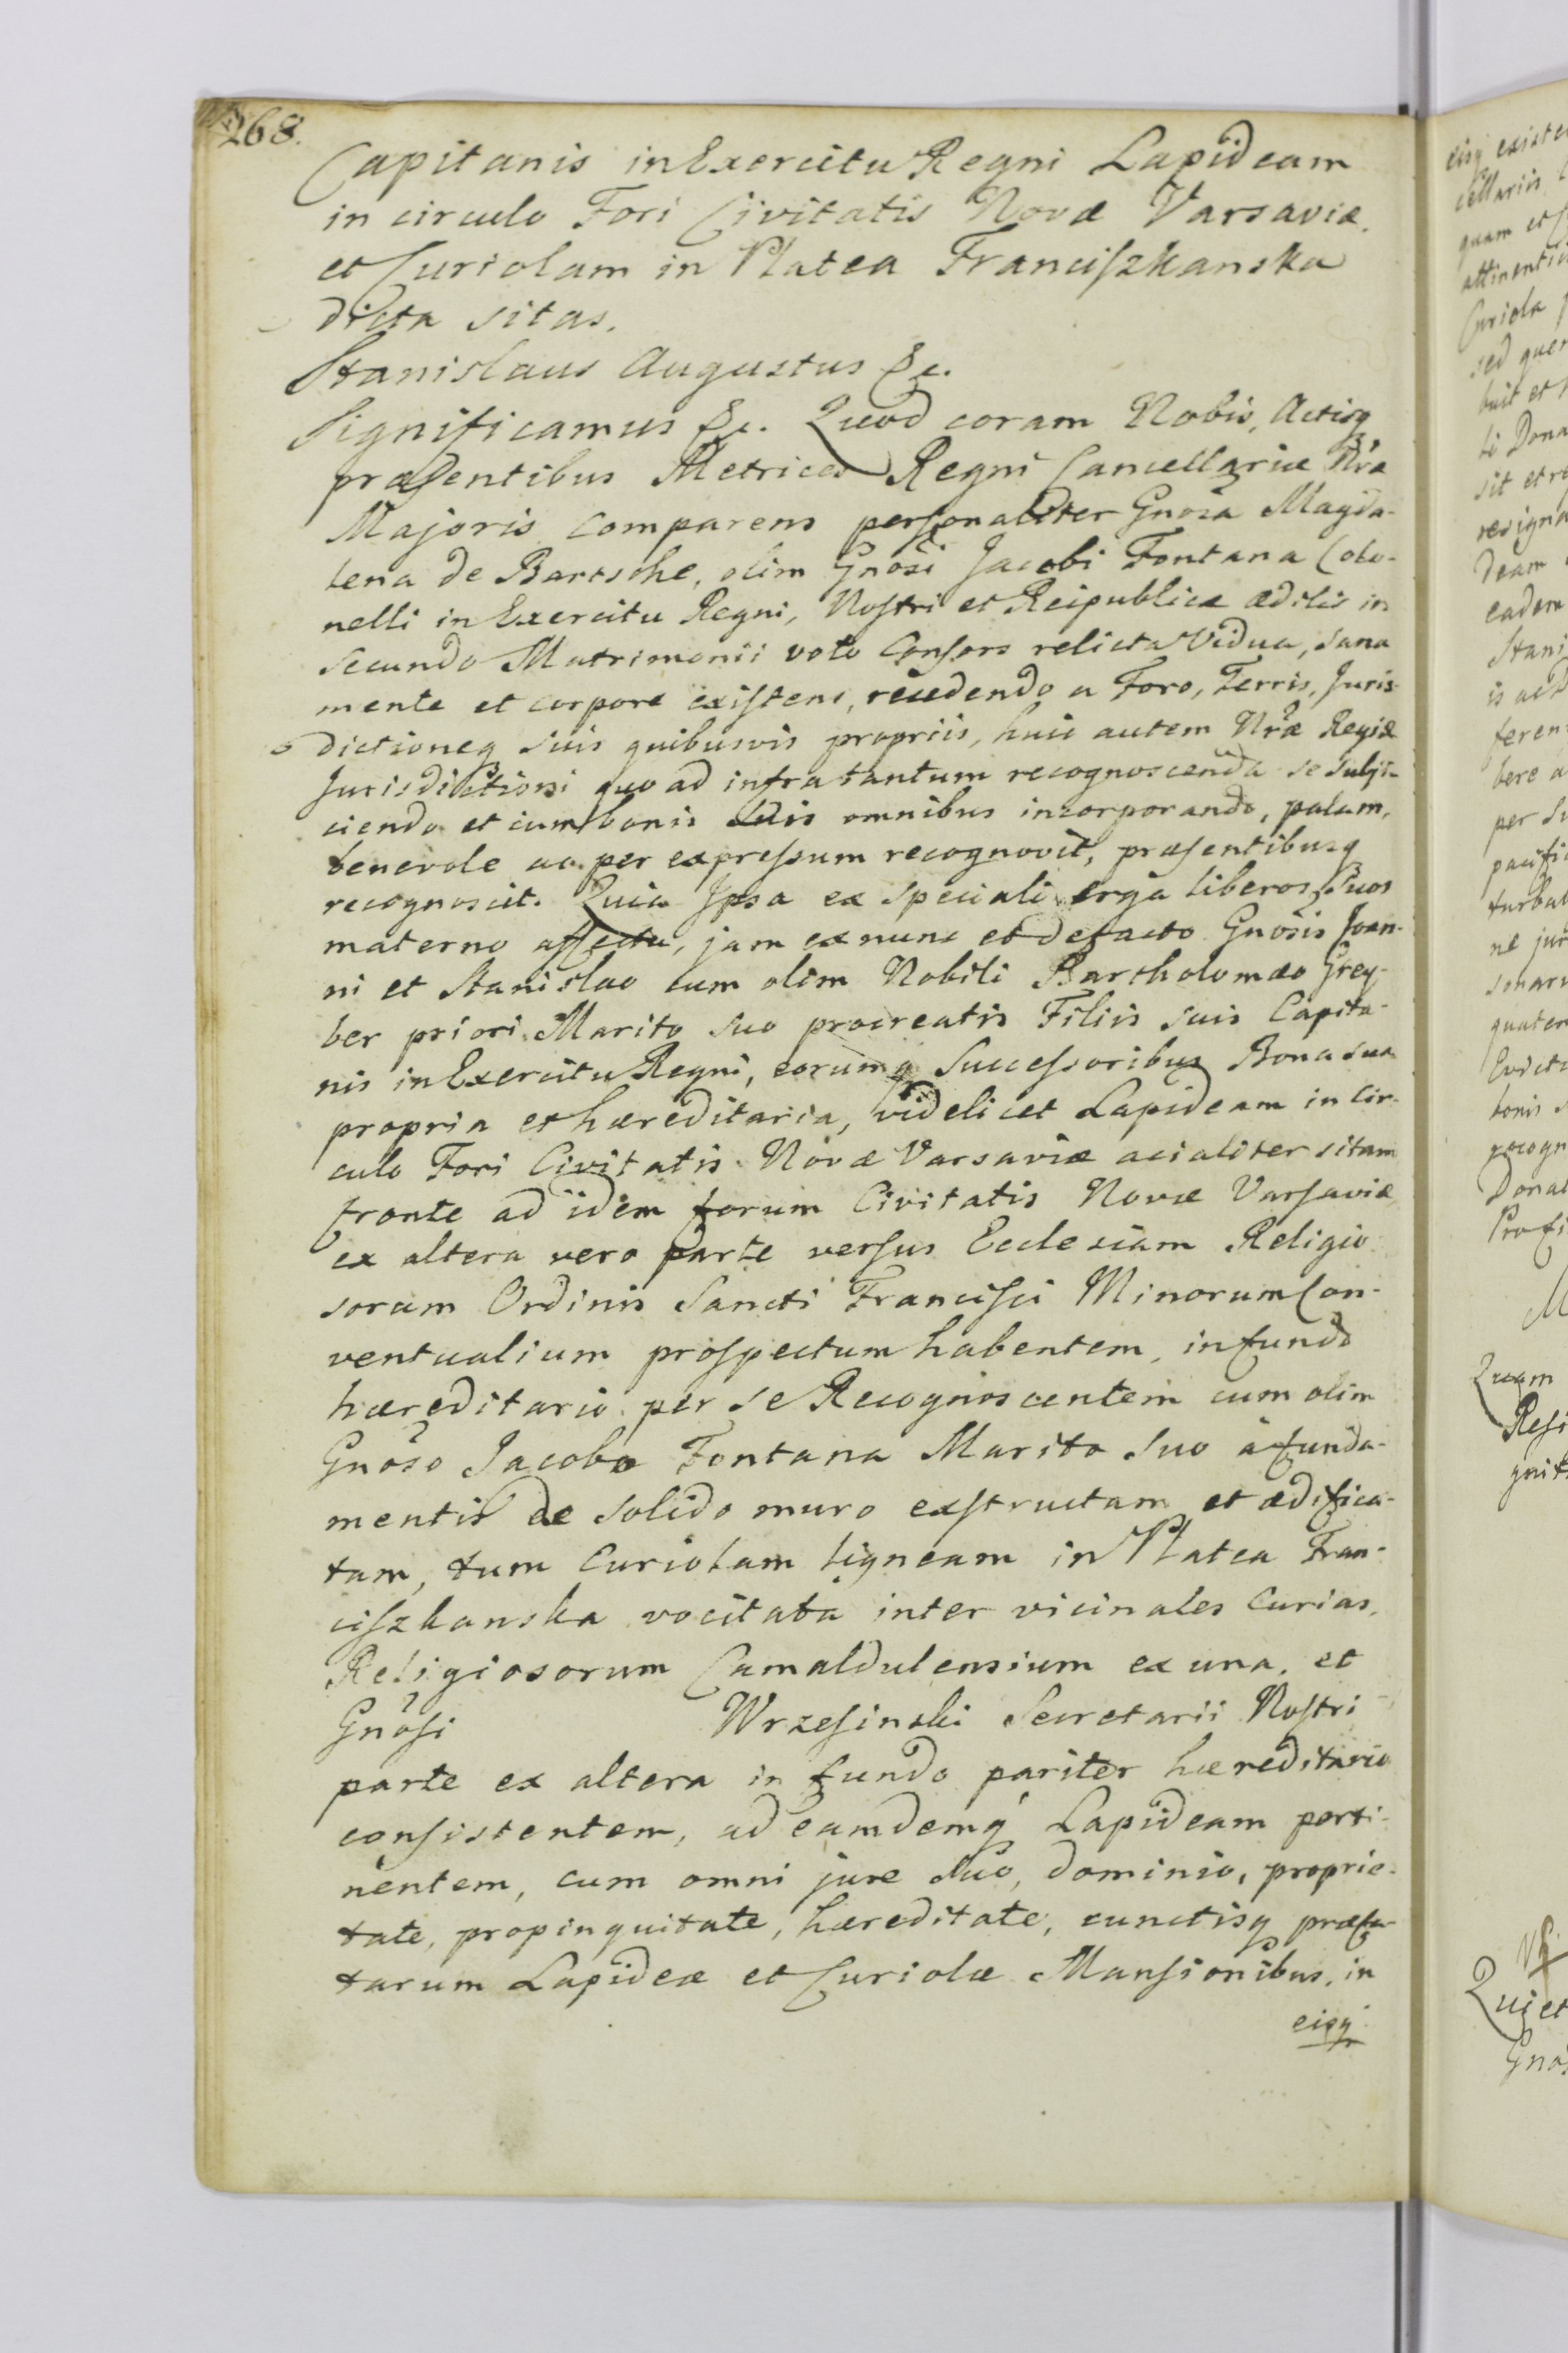 268.
Capitanis in Exercitu Regni Lapideam
in circulo Fori Civitatis Novæ Varsaviæ,
et Curiolam in Platea Franciſzkanska
dicta sitas.
Stanislaus Augustus &c.
Significamus &c. Quod coram Nobis, Actisq
præſentibus Metrices Regni Cancellariæ Nræ
Majoris comparens perſonaliter Gnosa Magda-
lena de Bartsche, olim Gnosi Jacobi Fontana Colo-
nelli in Exercitu Regni, Noſtri et Reipublicæ ædilis in
secundo Matrimonii voto Conſors relicta Vidua, sana
mente et corpore exiſtens, recedendo a Foro, Terris, Juris-
dictioneq suis quibusvis propriis, huic autem Nræ Regiæ
Jurisdictioni quo ad infra tantum recognoscenda se subji-
ciendo et cum bonis suis omnibus incorporando, palam,
benevole ac per expreſsum recognovit, præſentibusq
recognoscit. Quia Ipsa ex speciali erga liberos Suos
materno affectu, jam ex nunc et de facto Gnosis Joan-
ni et Stanislao cum olim Nobili Bartholomæo Grey-
ber priori Marito suo procreatis Filiis suis Capita-
nis in Exercitu Regni, eorumq Succeſsoribus Bona sua
propria et hæreditaria, videlicet Lapideam in Cir-
culo Fori Civitatis Novæ Varsaviæ acialiter sitam
fronte ad idem forum Civitatis Novæ Varſaviæ
ex altera vero parte verſus Ecclesiam Religio
sorum Ordinis Sancti Franciſci Minorum Con-
ventualium proſpectum habentem, in fundo
hæreditario per se Recognoscentem cum olim
Gnoso Jacobo Fontana Marito Suo à funda-
mentis de solido muro exſtructam et ædifica-
tam, tum Curiolam ligneam in Platea Fran-
ciſzkanska vocitata inter vicinales Curias,
Religiosorum Camaldulensium ex una, et
Gnoſi Wrzeſinski Secretarii Noſtri
parte ex altera in fundo pariter hæreditario
conſistentem, ad eamdemq Lapideam perti-
nentem, cum omni jure suo, dominio, proprie-
tate, propinquitate, hæreditate, cunctisq præfa-
tarum Lapideæ et Curiolæ Manſionibus, in
eisq